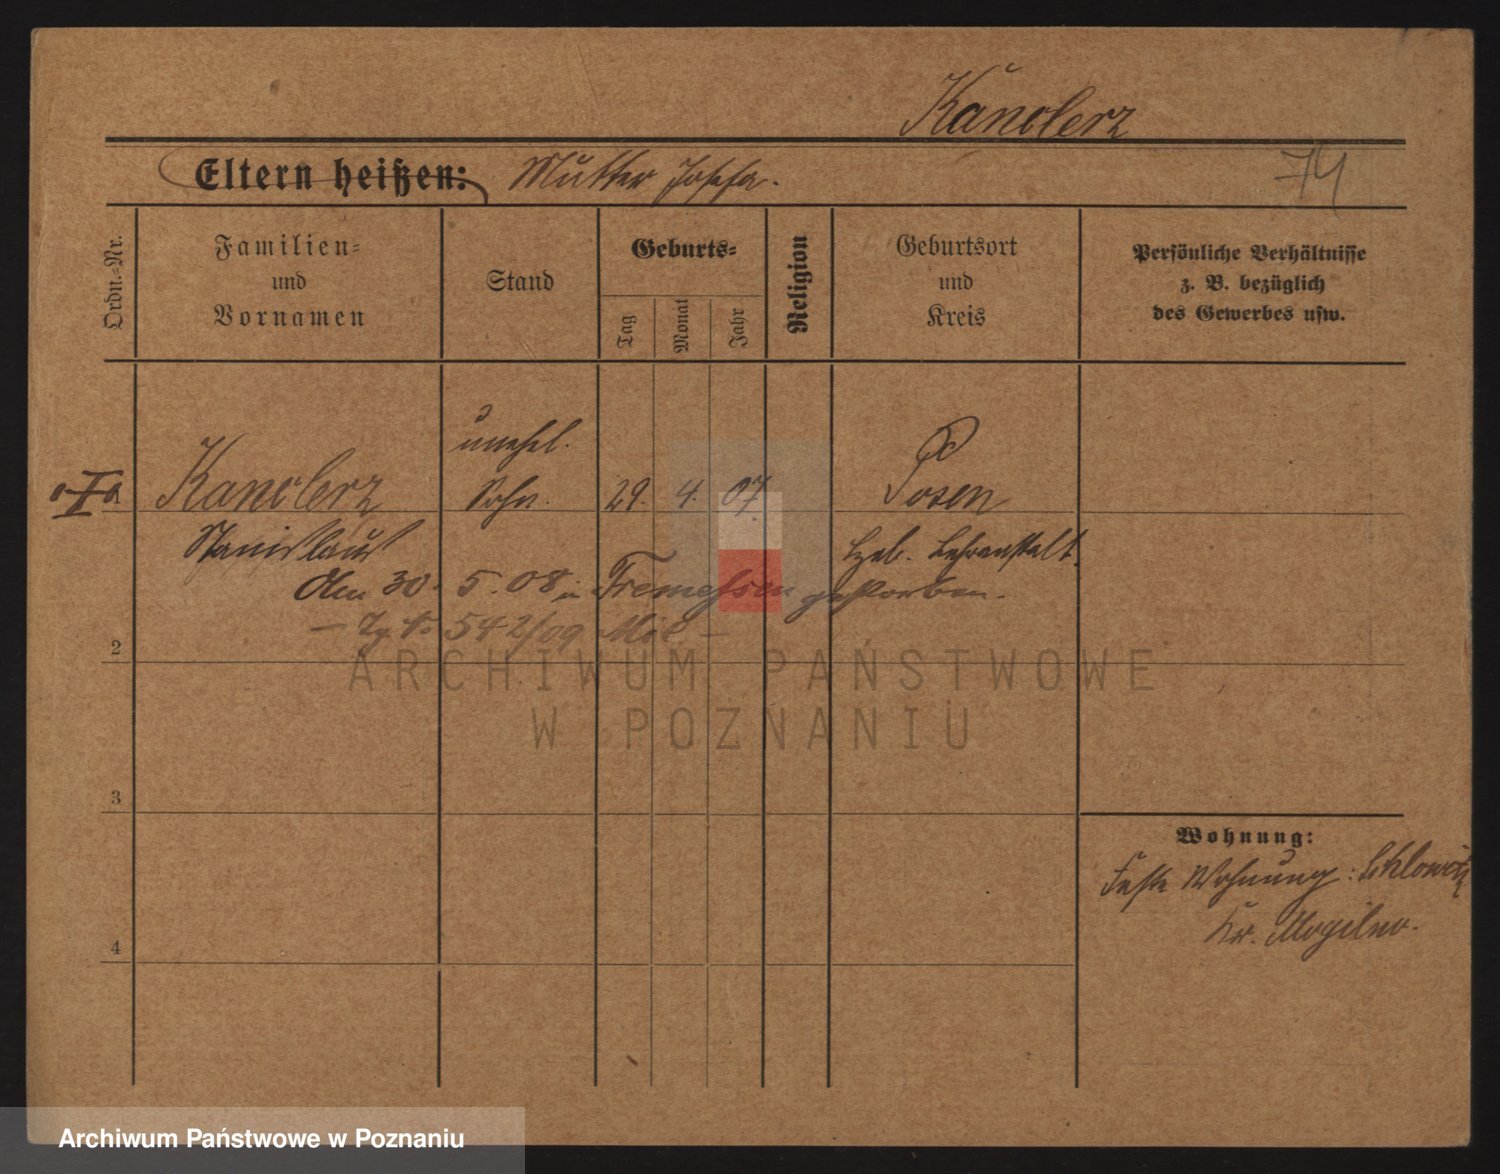 Kanclerz
Eltern heißen: Mutter Josefa.
74
Ordn.=Nr.
Familien=
und
Vornamen
Stand
Geburts=
Tag
Monat
Jahr
Religion
Geburtsort
und
Kreis
Persönliche Verhältnisse
z. B. bezüglich
des Gewerbes usw.
unehel.
1 Kanclerz Sohn. 29. 4. 07. Posen
Stanislaus Hebb. Lehranstalt.
Am 30. 5. 08 in Tremessen gestorben.
542/09 Mil
2
ARCHIWUM PAŃSTWOWE
W POZNANIU
3
Wohnung:
Feste Wohnung:
Kr. Mogilno.
4
Archiwum Państwowe w Poznaniu